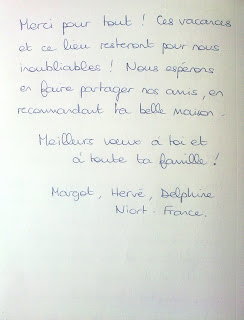 Merci pour tout ! Ces vacances
et ce lieu resteront pour nous
inoubliables ! Nous espérons
en faire partager nos amis, en
recommandant ta belle maison.
Meilleurs vœux à toi et
à toute ta famille !
Margot, Hervé, Delphine
Niort - France.